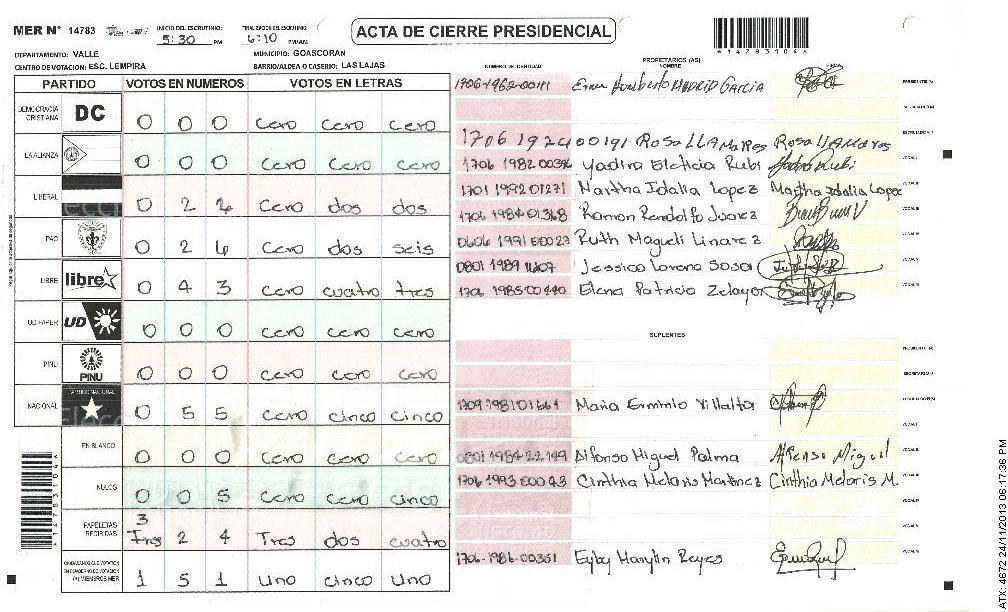 MER Nº 14783 INICIO DEL ESCRUTINIO: 5:30 PM FINALIZACION DEL ESCRUTINIO: 6:10 PM/AM ACTA DE CIERRE PRESIDENCIAL
DEPARTAMENTO: VALLE MUNICIPIO: GOASCORAN
CENTRO DE VOTACION: ESC. LEMPIRA BARRIO/ALDEA O CASERIO: LAS LAJAS
PARTIDO VOTOS EN NUMEROS VOTOS EN LETRAS
DEMOCRACIA CRISTIANA DC 0 0 0 Cero Cero Cero
LA ALIANZA 0 0 0 Cero Cero Cero
LIBERAL 0 2 2 Cero dos dos
PAC 0 2 6 Cero dos seis
LIBRE libre 0 4 3 Cero cuatro tres
UD-FAPER UD 0 0 0 Cero Cero Cero
PINU PINU 0 0 0 Cero Cero Cero
NACIONAL 0 5 5 Cero cinco cinco
EN BLANCO 0 0 0 Cero Cero Cero
NULOS 0 0 5 Cero Cero cinco
PAPELETAS RECIBIDAS 3 Tres 2 4 Tres dos cuatro
CIUDADANOS QUE VOTARON EN CUADERNO DE VOTACION (+) MIEMBROS MER 1 5 1 Uno cinco Uno
NUMERO DE IDENTIDAD PROPIETARIOS (AS) NOMBRE FIRMA
Humberto MADRID GARCIA PRESIDENTE (A)
1706 1924 00191 ROSA LLAMARES ROSA LLAMARES
1706 1982 Yadira Eleticia Rubi
1701 1992 01271 Martha Idalia Lopez Martha Idalia Lopez
1706 1984 01368 Ramon Rendolfo Juarez
0606 1991 00027 Ruth Maqueli Linarez
0801 1989 11607 Jessica Lorena Sosa
1706 1985 00440 Elena Patricia Zelaya
SUPLENTES
PRESIDENTE (A)
1709 1981 01661 Maria Erminio Villalta
0801 1984 22149 Alfonso Miguel Palma Alfonso Miguel
1706 1993 00043 Cinthia Melaris Martinez Cinthia Melaris M.
1706-1986-00351 Eyby Marylin Reyes
ATX: 4672 24/11/2013 06:17:36 PM